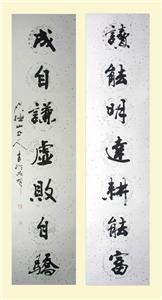 讀能明達耕能富
成自謙虛敗自驕